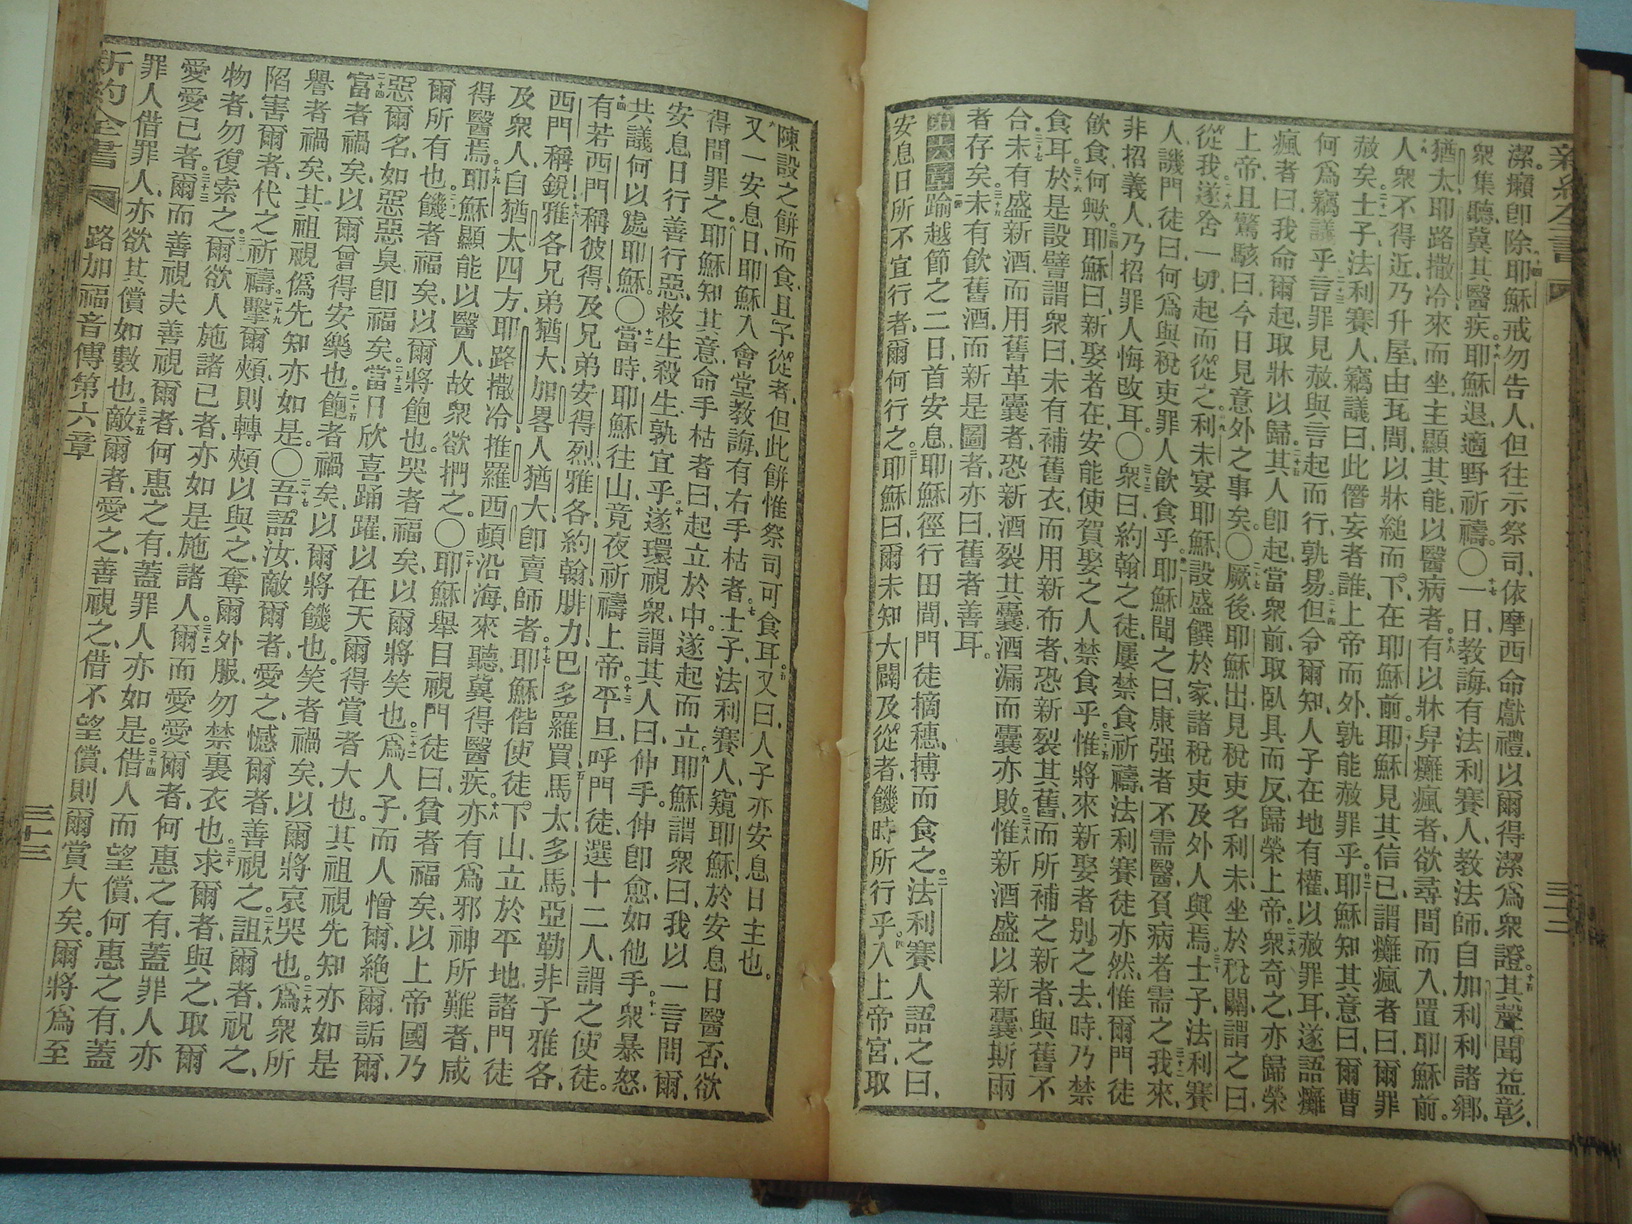 新約全書
潔癩卽除、耶穌戒勿告人、但往示祭司、依摩西命獻禮、以爾得潔爲衆證、其聲聞益彰、
衆集聽、冀其醫疾、耶穌退、適野祈禱。〇一日、教誨、有法利賽人、教法師、自加利利諸鄉、
猶太、耶路撒冷來而坐、主顯其能、以醫病者、有以牀舁癱瘋者、欲尋間而入、置耶穌前。
人衆不得近、乃升屋、由瓦間、以牀縋而下、在耶穌前。耶穌見其信已、謂癱瘋者曰、爾罪
赦矣。士子、法利賽人、竊議曰、此僭妄者誰、上帝而外、孰能赦罪乎。耶穌知其意曰、爾曹
何爲竊議乎、言罪見赦、與言起而行、孰易、但令爾知、人子在地有權、以赦罪耳、遂語癱
瘋者曰、我命爾起、取牀以歸。其人卽起、當衆前、取臥具而反、歸榮上帝、衆奇之、亦歸榮
上帝、且驚駭曰、今日見意外之事矣。〇厥後、耶穌出、見稅吏名利未、坐於稅關、謂之曰、
從我、遂舍一切、起而從之、利未宴耶穌、設盛饌於家、諸稅吏及外人與焉。士子、法利賽
人、譏門徒曰、何爲與稅吏罪人飲食乎。耶穌聞之曰、康强者不需醫、負病者需之、我來、
非招義人、乃招罪人悔改耳。〇衆曰、約翰之徒、屢禁食祈禱、法利賽徒亦然、惟爾門徒
飲食、何歟。耶穌曰、新娶者在、安能使賀娶之人禁食乎、惟將來新娶者別之去、時乃禁
食耳、於是設譬謂衆曰、未有補舊衣、而用新布者、恐新裂其舊、而所補之新者、與舊不
合、未有盛新酒、而用舊革囊者、恐新酒裂其囊、酒漏而囊亦敗、惟新酒盛以新囊、斯兩
者存矣、未有飲舊酒、而新是圖者、亦曰、舊者善耳。
踰越節之二日、首安息、耶穌徑行田間、門徒摘穗、搏而食之。法利賽人語之曰、
安息日所不宜行者、爾何行之。耶穌曰、爾未知大闢、及從者、饑時所行乎、入上帝宮、取
陳設之餅而食、且予從者、但此餅、惟祭司可食耳。又曰、人子亦安息日主也。
又一安息日、耶穌入會堂教誨、有右手枯者、士子、法利賽人、窺耶穌於安息日醫否、欲
得間罪之、耶穌知其意、命手枯者曰、起立於中。遂起而立、耶穌謂衆曰、我以一言問爾、
安息日行善行惡、救生殺生、孰宜乎、遂環視衆、謂其人曰、伸手、伸卽愈、如他手。衆暴怒、
共議何以處耶穌。〇當時、耶穌往山、竟夜祈禱上帝。平旦、呼門徒、選十二人、謂之使徒。
有若西門、稱彼得、及兄弟安得烈、雅各、約翰、腓力、巴多羅買、馬太、多馬、亞勒非子雅各、
西門、稱銳、雅各兄弟猶大、加畧人猶大、卽賣師者、耶穌偕使徒下山、立於平地、諸門徒
及衆人、自猶太四方、耶路撒冷、推羅、西頓沿海、來聽、冀得醫疾、亦有爲邪神所難者、咸
得醫焉、耶穌顯能以醫人、故衆欲捫之。〇耶穌舉目視門徒曰、貧者福矣、以上帝國乃
爾所有也、饑者福矣、以爾將飽也。哭者福矣、以爾將笑也、爲人子而人憎爾、絶爾、詬爾、
惡爾名、如惡惡臭、卽福矣、當日欣喜踴躍、以在天爾得賞者大也。其祖視先知亦如是
富者禍矣、以爾曾得安樂也、飽者禍矣、以爾將饑也。笑者禍矣、以爾將哀哭也、爲衆所
譽者禍矣、其祖視僞先知亦如是。〇吾語汝、敵爾者、愛之、憾爾者、善視之、詛爾者、祝之、
陷害爾者、代之祈禱、擊爾頰、則轉頰以與之、奪爾外服、勿禁裏衣也。求爾者、與之、取爾
物者、勿復索之、爾欲人施諸己者、亦如是施諸人。爾而愛愛爾者、何惠之有、蓋罪人亦
愛愛己者、爾而善視夫善視爾者、何惠之有、蓋罪人亦如是。借人而望償、何惠之有、蓋
罪人借罪人、亦欲其償如數也、敵爾者、愛之、善視之、借不望償、則爾賞大矣。爾將爲至
新約全書 路加福音傳第六章 三十三